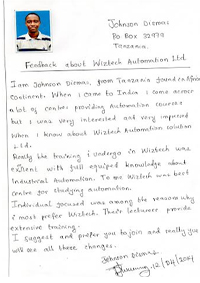 Johnson Dismas,
PO Box 32979
Tanzania.
Feedback about Wiztech Automation Ltd.
I am Johnson Dismas, from Tanzania found in Africa
Continent. When I came to India I come across
a lot of centres providing Automation courses
but I was very interested and very impressed
When I know about Wiztech Automation solution
Ltd.
Really the training i undergo in Wiztech was
excellent with full equiped knowledge about
Industrial Automation. To me Wiztech was best
centre for studying automation.
Individual focused was among the reasons why
i most prefer Wiztech. Their lecturer provide
extensive training.
I suggest and prefer you to join and really you
will see all these changes.
Johnson Dismas.
12/04/2014